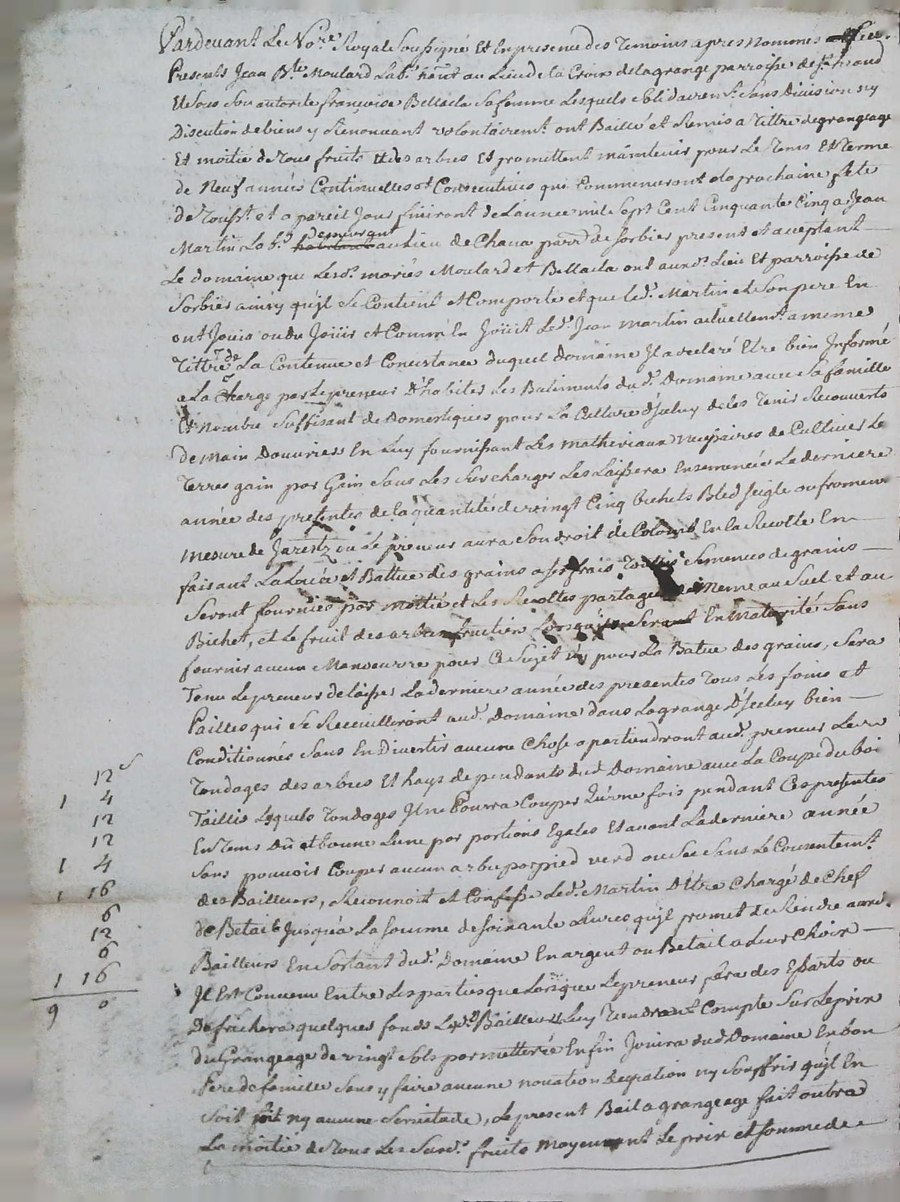 Pardevant Le No.re Royale Soussigné Et En presence des Temoins apres Nommés
Presents Jean B.te Moulard Lab.r habt au Lieu de la Croix de lagrange parroisse de
Et de Sous Son autorité françoise Bellacla Sa femme Lesquels Solidairem.t Sans Division ny
Discution de biens y Renonçant volontairem.t ont Baillé et Remis a Tittre de grangeage
Et moitié de Tous fruits et des arbres Et promettent maintenir pour Le Tems Et Terme
de Neuf années Continuelles et Consecutives qui Commenceront a la prochaine fete
de Touss.t et a pareil Jour finiront de Lannée mil Sept Cent Cinquante Cinq a Jean
Martin Lab.r demeurant au Lieu de Chava parr.e de Sorbier present et aceptant
Le domaine que Lesd.s mariés Moulard et Bellacla ont aud.t Lieu Et parroisse de
Sorbier ainsy quil Se Contient et Comporte et que led.t Martin et Son pere En
ont Jouis ou du Joüir et Comme En Joüit Led.t Jean martin actuellem.t a meme
Tittre de La Contenue et Consistance duquel Domaine Il a declaré Etre bien Informé
a La Charge par Le preneur D'habiter Les Batiments dud.t Domaine avec Sa famille
Et Nombre Suffisant de Domestiques pour La Culture d'Iceluy de les Tenir Recouverts
de Main Douvrier En Luy fournissant Les matheriaux Necessaires de Cultiver Le
Terres gain par Gain Sans Les Surcharger Les Laissera Ensemencées La derniere
année des presentes de la quantité de vingt Cinq bichets Bled Seigle ou froment
mesure de Jarentz ou Le preneur aura Son droit de Colomb En la Recolte En
faisant La Levée et Battue des grains a Ses frais Semences de grains
Seront fournies par moitié et Les Recoltes partagées Meme au Suel et au
Bichet, et Le fruit des arbres fruction Lorsquils Seront En Maturité Sans
fournir aucun Manoeuvre pour Ce Sujet ny pour La Batue des grains, Sera
Tenu Le preneur de laisser La derniere année des presentes Tous Les foins et
Pailles qui Se Receuilleront aud.t Domaine dans La grange D'Iceluy bien
Conditionnés Sans En Divertir aucune Chose apartiendront aud.t preneur Les
Tondages des arbres Et hays dependants dud.t Domaine avec La Coupe du boi
Taillis Lesquels Tondages Il ne Pourra Couper Qu'une fois pendant Ces presentes
En Tems Dû et bonne Lune par portions Egales Et avant La derniere année
Sans pouvoir Couper aucun arbre par pied verd ou Sec Sans Le Consentem.t
des Bailleurs, Reconnoit et Confesse Led.t Martin D'Etre Chargé de Chef
de Betail Jusqu'a La Somme de Soixante Livres quil promet de Rendre aud.t
Bailleurs En Sortant dud.t Domaine En argent ou Betail a Leur Choix
Il Est Convenu Entre Les parties que Lorsque Le preneur fera des Esparts ou
Defrichera quelques fonds Lesd.s Bailleurs Luy Tiendront Compte Sur Le prix
du Grangeage de vingt Sols par metterée Enfin Jouira dud.t Domaine En bon
Pere de famille Sans y faire aucune novation degration ny Souffrir quil En
Soit fait ny aucune Servitude, Le present Bail a grangeage fait outre
La moitié de Tous Les Susd.s fruits Moyennant Le prix et Somme de
12 s
1 4
12
12
1 4
1 16
6
12
6
1 16
9 0